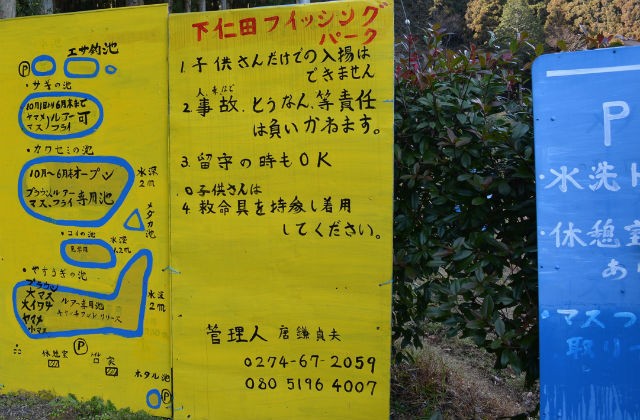 エサ釣池
P
・サギの池
10月1日より6月末まで
ヤマメ ルアー 可
マス フライ
・カワセミの池
10月〜6月末オープン
ブラウン ルアー
マス、フライ 専用池
水深
2m
メダカ池
・コイの池
水深
1.2m
・やすらぎの池
ブラウン
大マス
大イワナ
ヤマメ
小マス
ルアー専用池
キャッチアンドリリース
水深
2m
休憩室
P
ホタル池
P
下仁田フィッシング
パーク
1.子供さんだけでの入場は
できません
2.事故、とうなん、等責任
は負いかねます。
3.留守の時もOK
○子供さんは
4.救命具を持参し着用
してください。
管理人 唐鎌貞夫
0274-67-2059
080 5196 4007
P
・水洗ト
・休憩室
あ
・マスつ
取り